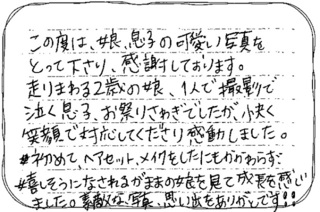 この度は、娘、息子の可愛い写真を
とって下さり、感謝しております。
走りまわる2歳の娘、1人で撮影で
泣く息子、お祭りさわぎでしたが、快く
笑顔で対応してくださり感動しました。
初めて、ヘアセット、メイクをしたにもかかわらず、
嬉しそうになされるがままの娘を見て成長を感じ
ました。素敵な写真、思い出をありがとうです!!